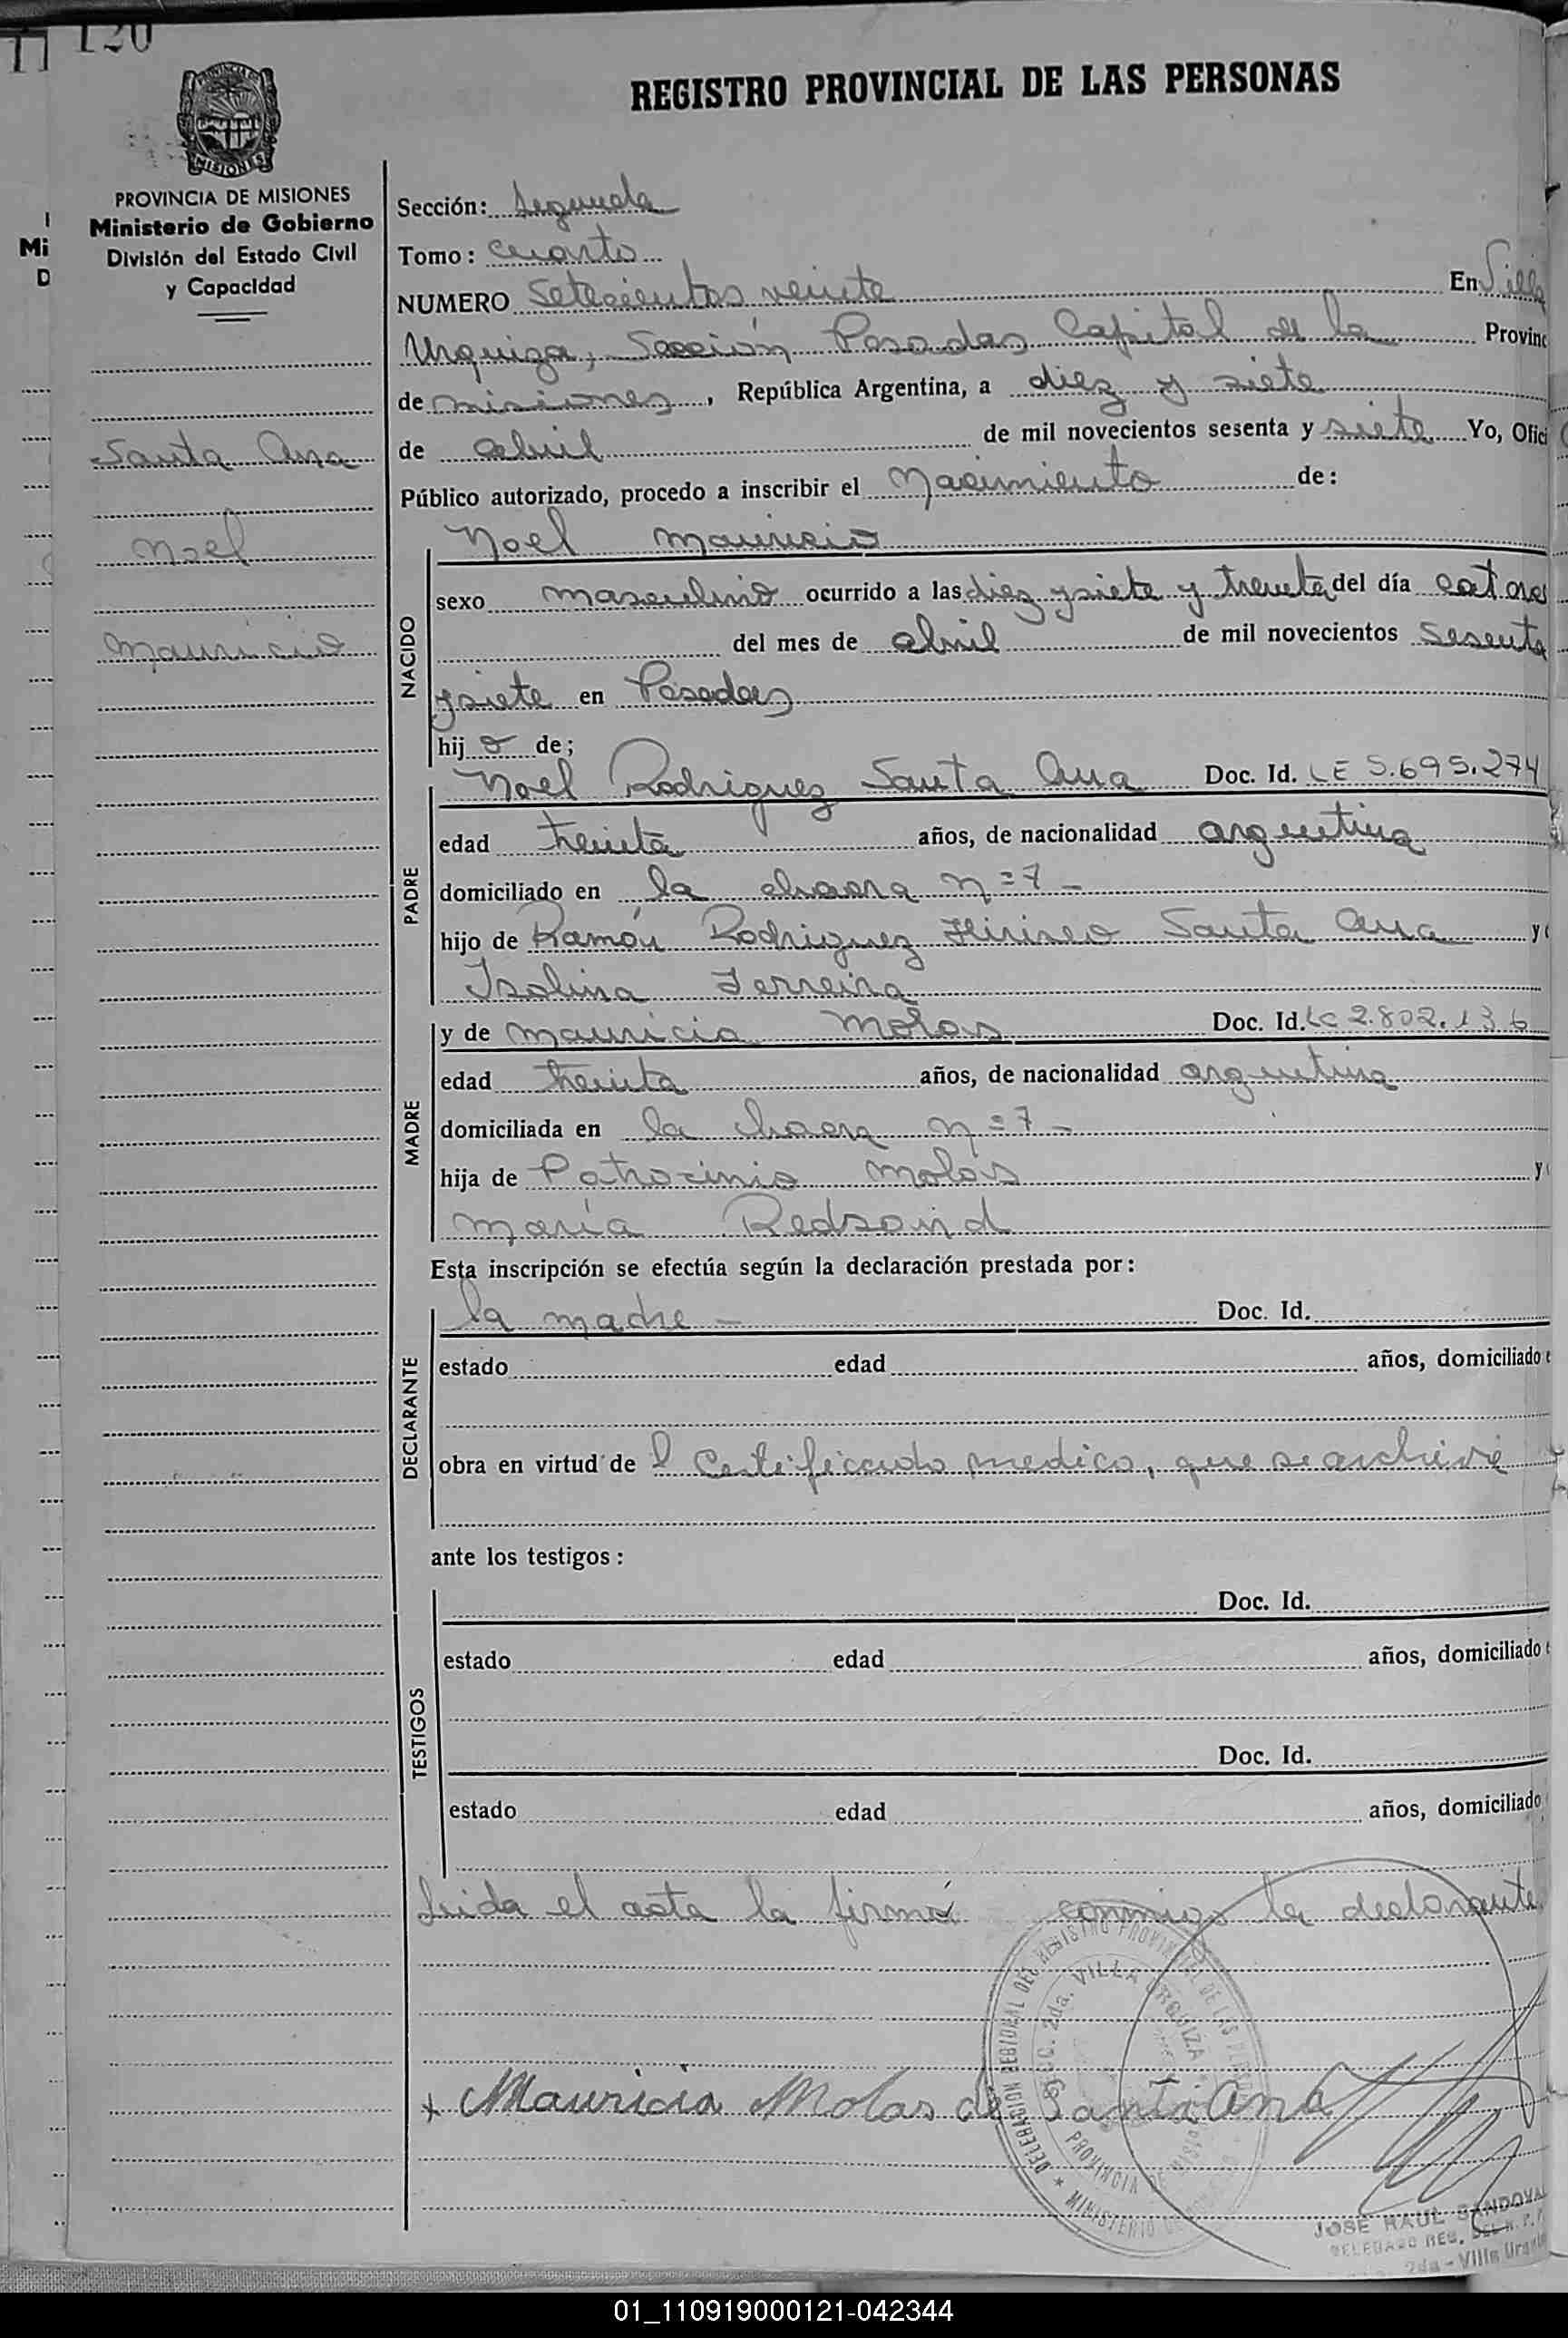 120
REGISTRO PROVINCIAL DE LAS PERSONAS
MISIONES
PROVINCIA DE MISIONES
Ministerio de Gobierno
División del Estado Civil
y Capacidad
Santa Ana
Noel
Mauricio
Sección: Segunda
Tomo: Cuarto
NUMERO Setecientos veinte En Villa
Urquiza, Sección Posadas Capital de la Provinc
de misiones, República Argentina, a diez y siete
de abril de mil novecientos sesenta y siete Yo, Ofici
Público autorizado, procedo a inscribir el Nacimiento de:
NACIDO
Noel Mauricio
sexo masculino ocurrido a las diez y siete y treinta del día catorce
del mes de abril de mil novecientos sesenta
y siete en Posadas
hijo de;
PADRE
Noel Rodriguez Santa Ana Doc. Id. LE 5.695.274
edad treinta años, de nacionalidad argentina
domiciliado en la chacra n=7-
hijo de Ramón Rodriguez Santa Ana y
Isolina Ferreira
MADRE
y de Mauricia Molas Doc. Id. LC 2.802.136
edad treinta años, de nacionalidad argentina
domiciliada en la chacra n=7-
hija de Patrocinio Molas y
María Redsoind
Esta inscripción se efectúa según la declaración prestada por:
DECLARANTE
la madre - Doc. Id.
estado edad años, domiciliado e
obra en virtud de l Certificado medico, que se archiva
ante los testigos:
TESTIGOS
Doc. Id.
estado edad años, domiciliado
Doc. Id.
estado edad años, domiciliado
Leida el acta la firma conmigo la declarante
DELEGACION REGIONAL DEL REGISTRO PROVINCIAL DE LAS
SECC. 2da. VILLA URQUIZA
PROVINCIA DE MISIONES
MINISTERIO DE
x Mauricia Molas de Santa Ana
JOSE RAUL SANDOVAL
DELEGADO REG. DEL R. P. P.
2da - Villa Urqui
01_110919000121-042344